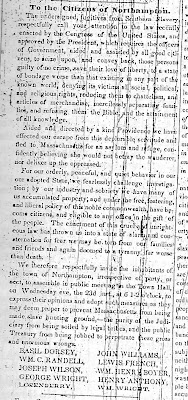 To the Citizens of Northampton.
The undersigned, fugitives from Southern Slavery,
respectfully call your attention to the law recently
enacted by the Congress of the United States, and
approved by the President, which requires the officers
of Government, aided and assisted by all good citi-
zens, to seize upon, and convey back, those persons
guilty of no crime, save their love of liberty, to a state
of bondage worse than that existing in any part of the
known world, denying its victims all social, political,
and religious rights, reducing them to chattelism, and
articles of merchandise, mercilessly separating fami-
lies, and refusing them the Bible, and the attainment
of all knowledge.
Aided and directed by a kind Providence, we have
effected our escape from this deplorable servitude and
fled to Massachusetts for an asylum and refuge, con-
fidently believing she would not betray the wanderer,
nor deliver up the oppressed.
For our orderly, peaceful, and quiet behavior in our
our adopted State, we fearlessly challenge investiga-
tion; by our industry and sobriety we have many of
us accumulated property; and under the free, fostering,
and liberal policy of this noble commonwealth, have be-
come citizens, and eligible to any office in the gift of
the people. The enactment of this cruel and unright-
eous law has thrown us into a state of fearful con-
sternation for fear we may be torn from our families
and friends and again doomed to a tyranny far worse
than death.
We therefore respectfully invite the inhabitants of
the town of Northampton, irrespective of party, or
sect, to assemble in public meeting at the Town Hall,
on Wednesday eve, the 23d inst., at 6 1-2 o'clock, to
express their opinions and adopt such measures as they
may deem proper to prevent Massachusetts from being
made slave hunting ground,—the purity of the Judi-
ciary from being soiled by legal bribes, and the public
Treasury from being robbed to perpetuate these gross
and enormous wrongs.
BASIL DORSEY, JOHN WILLIAMS,
WM. C. RANDELL, LEWIS FRENCH,
JOSEPH WILSON, WM. HENRY BOYER,
GEORGE WRIGHT, HENRY ANTHONY,
WM. WRIGHT.